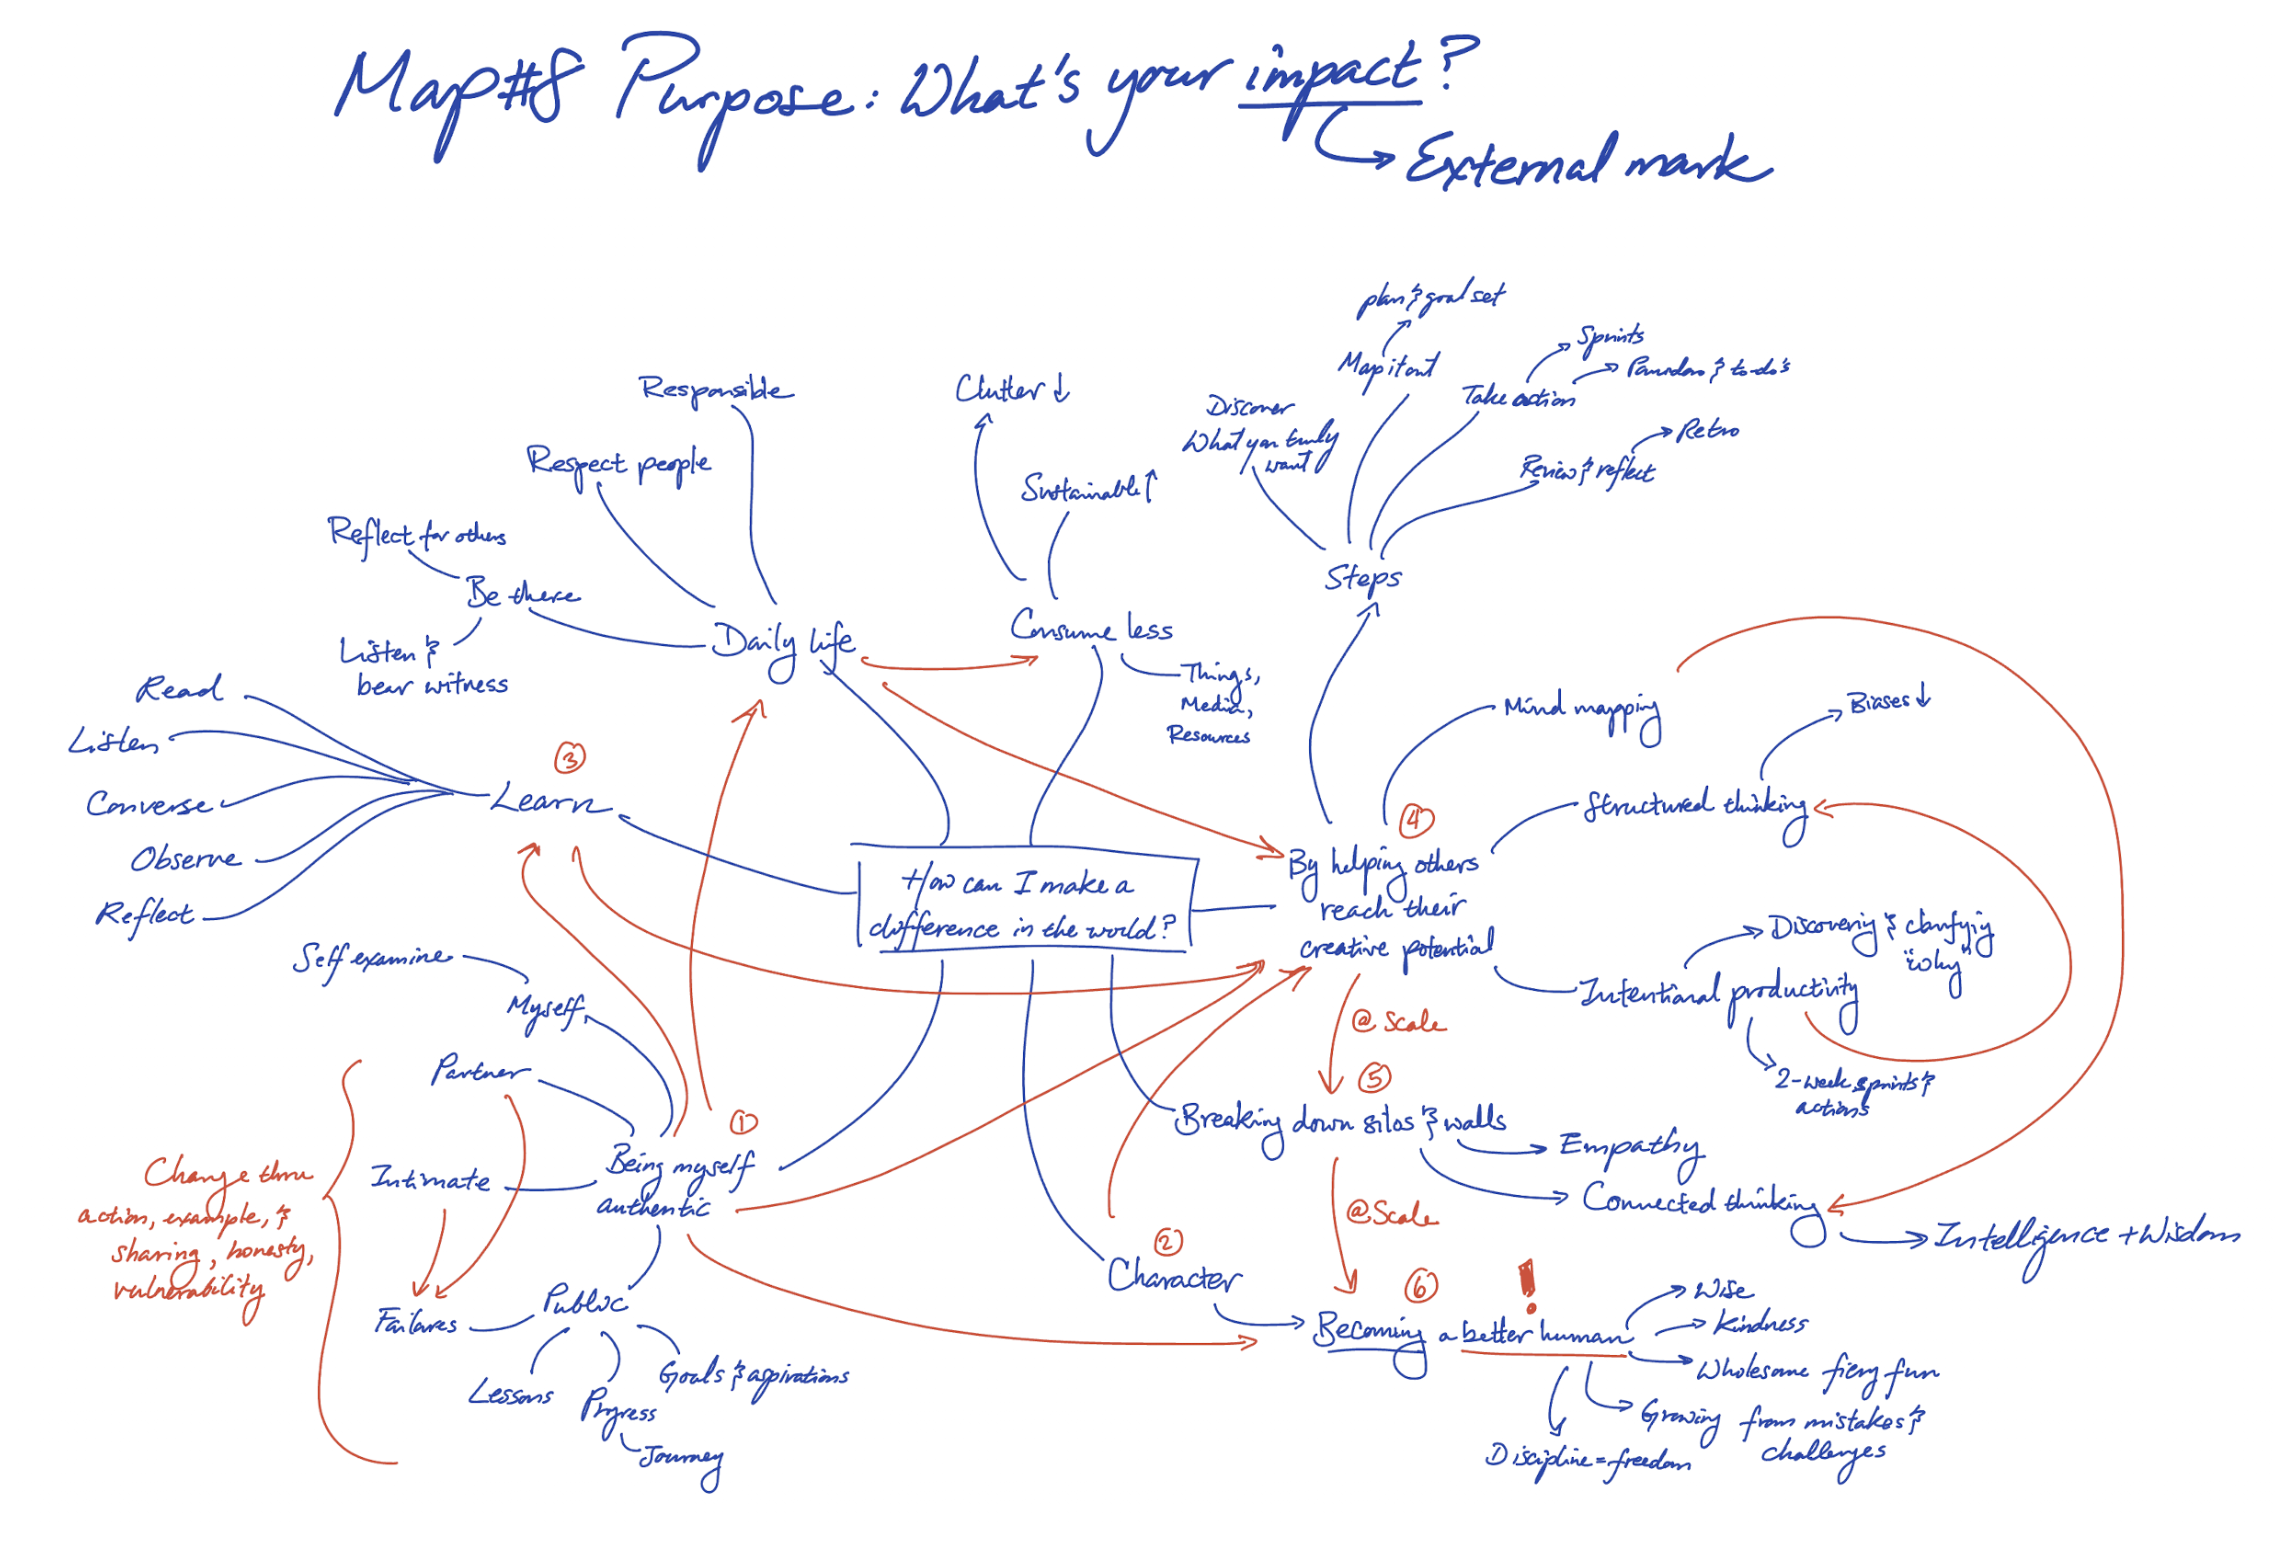 Map#8 Purpose: What's your impact?
External mark
plan & goal set
Map it out
Sprints
Pomodoro & to-do's
Take action
Discover
What you truly
want
Retro
Review & reflect
Steps
Responsible
Respect people
Reflect for others
Be there
Listen &
bear witness
Daily life
Clutter ↓
Sustainable ↑
Consume less
Things,
Media,
Resources
Read
Listen
Converse
Observe
Reflect
③
Learn
How can I make a
difference in the world?
④
By helping others
reach their
creative potential
Mind mapping
Biases ↓
Structured thinking
Discovering & clarifying
"why"
Intentional productivity
2-week sprints &
actions
@ Scale
⑤
Breaking down silos & walls
Empathy
Connected thinking
Intelligence + Wisdom
@Scale
⑥
!
Becoming a better human
Wise
Kindness
Wholesome fiery fun
Growing from mistakes &
challenges
Discipline = freedom
②
Character
①
Being myself
authentic
Self examine
Myself
Partner
Intimate
Public
Failures
Lessons
Progress
Journey
Goals & aspirations
Change thru
action, example, &
sharing, honesty,
vulnerability